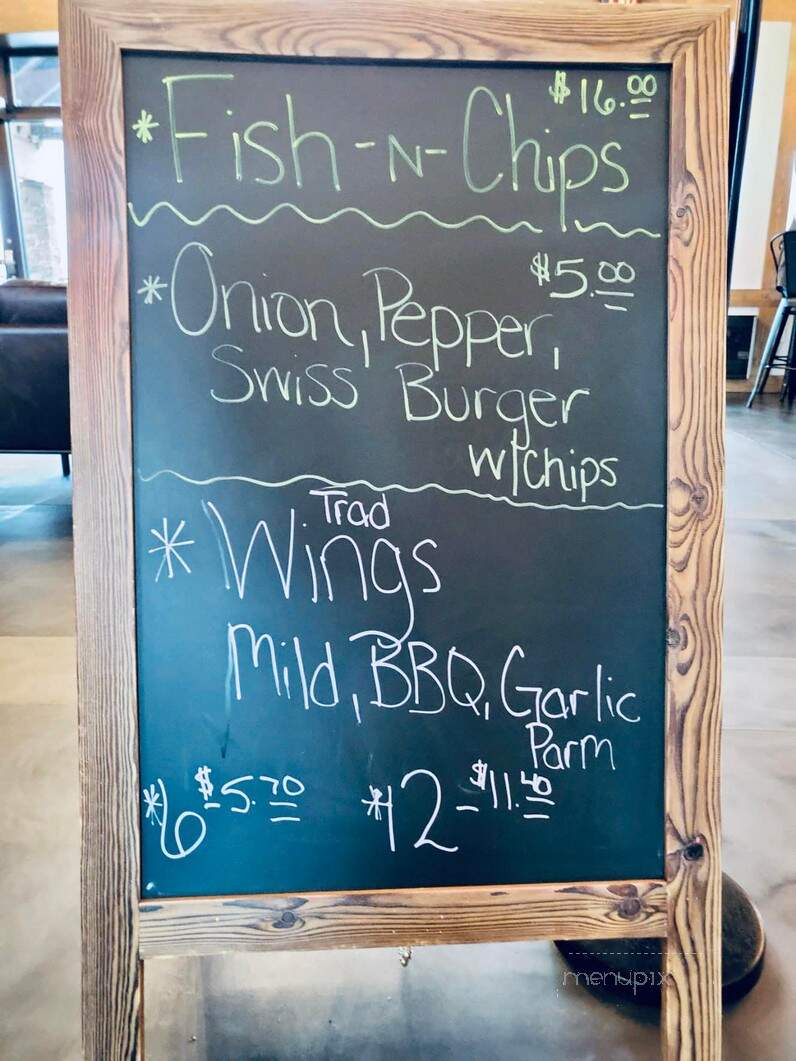 * Fish -N- Chips $16.00
* Onion, Pepper, $5.00
Swiss Burger
w/chips
Trad
* Wings
Mild, BBQ, Garlic
Parm
*6 - $5.70 *12 - $11.40
menupix